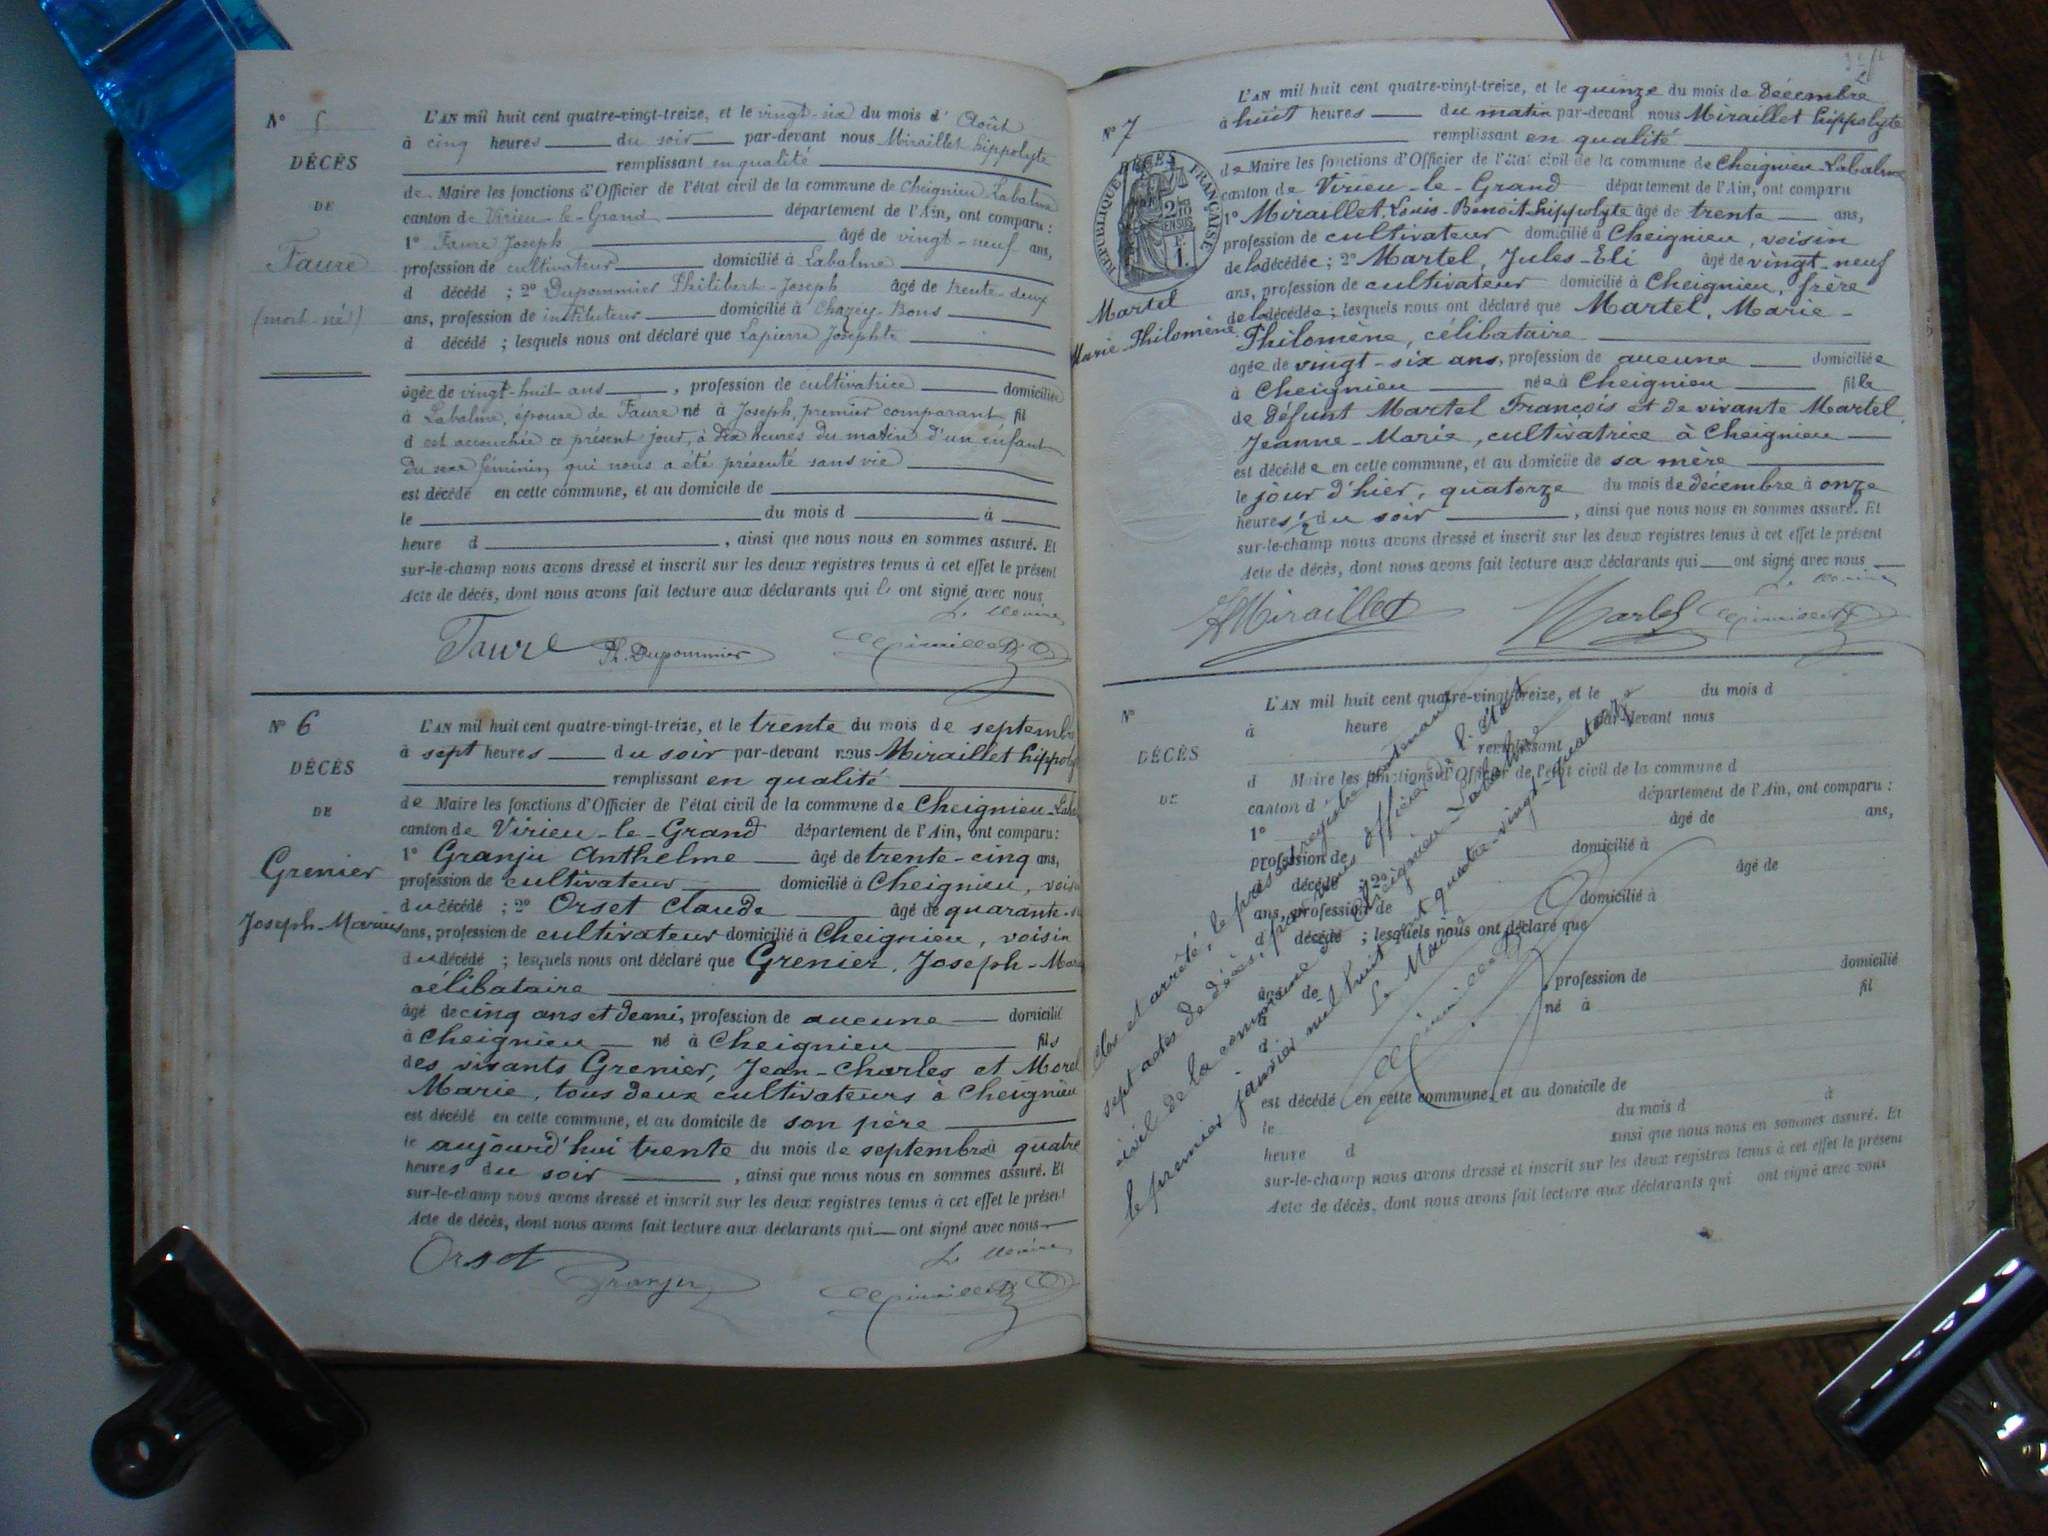 N° 5
DÉCÈS
DE
Faure
(mort-né)
L'AN mil huit cent quatre-vingt-treize, et le vingt-six du mois d' Août
à cinq heures du soir par-devant nous Miraillet hippolyte
remplissant en qualité
de Maire les fonctions d'Officier de l'état civil de la commune de Cheignieu Labalme
canton de Virieu-le-Grand département de l'Ain, ont comparu :
1° Faure Joseph âgé de vingt-neuf ans,
profession de cultivateur domicilié à Labalme
d décédé ; 2° Dupommier Philibert-Joseph âgé de trente-deux
ans, profession de instituteur domicilié à Chazey-Bons
d décédé ; lesquels nous ont déclaré que Lapierre Josephte
âgée de vingt-huit ans, profession de cultivatrice domiciliée
à Labalme, épouse de Faure né à Joseph, premier comparant fil
d est accouchée ce présent jour, à dix heures du matin d'un enfant
du sexe féminin, qui nous a été présenté sans vie
est décédé en cette commune, et au domicile de
le du mois d à
heure d , ainsi que nous nous en sommes assuré. Et
sur-le-champ nous avons dressé et inscrit sur les deux registres tenus à cet effet le présent
Acte de décès, dont nous avons fait lecture aux déclarants qui ont signé avec nous
Le Maire
Faure Ph. Dupommier Miraillet
N° 6
DÉCÈS
DE
Grenier
Joseph-Marius
L'AN mil huit cent quatre-vingt-treize, et le trente du mois de septembre
à sept heures du soir par-devant nous Miraillet hippoly
remplissant en qualité
de Maire les fonctions d'Officier de l'état civil de la commune de Cheignieu-Laba
canton de Virieu-le-Grand département de l'Ain, ont comparu :
1° Granju Anthelme âgé de trente-cinq ans,
profession de cultivateur domicilié à Cheignieu, voisi
du décédé ; 2° Orset Claude âgé de quarante
ans, profession de cultivateur domicilié à Cheignieu, voisin
du décédé ; lesquels nous ont déclaré que Grenier, Joseph-Mari
célibataire
âgé de cinq ans et demi, profession de aucune domicilié
à Cheignieu né à Cheignieu fils
des vivants Grenier, Jean-Charles et Morel
Marie, tous deux cultivateurs à Cheignieu
est décédé en cette commune, et au domicile de son père
le aujourd'hui trente du mois de septembre à quatre
heures du soir , ainsi que nous nous en sommes assuré. Et
sur-le-champ nous avons dressé et inscrit sur les deux registres tenus à cet effet le présent
Acte de décès, dont nous avons fait lecture aux déclarants qui ont signé avec nous
Le Maire
Orset Granju Miraillet
N° 7
DÉCÈS
RÉPUBLIQUE FRANÇAISE
2/10 EN SUS
F. 1.
Martel
Marie-Philomène
L'AN mil huit cent quatre-vingt-treize, et le quinze du mois de décembre
à huit heures du matin par-devant nous Miraillet hippolyte
remplissant en qualité
de Maire les fonctions d'Officier de l'état civil de la commune de Cheignieu-Labalme
canton de Virieu-le-Grand département de l'Ain, ont comparu
1° Miraillet, Louis-Benoît-hippolyte âgé de trente ans,
profession de cultivateur domicilié à Cheignieu, voisin
de la décédée ; 2° Martel, Jules-Eli âgé de vingt-neuf
ans, profession de cultivateur domicilié à Cheignieu, frère
de la décédée ; lesquels nous ont déclaré que Martel, Marie-
Philomène, célibataire
agée de vingt-six ans, profession de aucune domiciliée
à Cheignieu née à Cheignieu fille
de défunt Martel François et de vivante Martel
Jeanne-Marie, cultivatrice à Cheignieu
est décédée en cette commune, et au domicile de sa mère
le jour d'hier, quatorze du mois de décembre à onze
heures 1/2 du soir , ainsi que nous nous en sommes assuré. Et
sur-le-champ nous avons dressé et inscrit sur les deux registres tenus à cet effet le présent
Acte de décès, dont nous avons fait lecture aux déclarants qui ont signé avec nous
Le Maire
H Miraillet Martel Miraillet
N°
DÉCÈS
DE
L'AN mil huit cent quatre-vingt-treize, et le du mois d
à heure par-devant nous
remplissant
d Maire les fonctions d'Officier de l'état civil de la commune d
canton d département de l'Ain, ont comparu :
1° âgé de ans,
profession de domicilié à
d décédé ; 2° âgé de
ans, profession de domicilié à
d décédé ; lesquels nous ont déclaré que
âgé de profession de domicilié
à né à fil
d
est décédé en cette commune, et au domicile de
le du mois d à
heure d ainsi que nous nous en sommes assuré. Et
sur-le-champ nous avons dressé et inscrit sur les deux registres tenus à cet effet le présent
Acte de décès, dont nous avons fait lecture aux déclarants qui ont signé avec nous
Clos et arrêté, le présent registre contenant
sept actes de décès, par nous officier de l'état
civil de la commune de Cheignieu-Labalme
le premier janvier mil huit cent quatre-vingt-quatorze
Le Maire
Miraillet